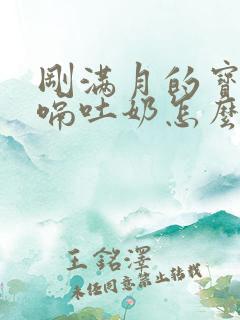 剛滿月的寶
喘吐奶怎麼
王銘澤
未經同意禁止轉載